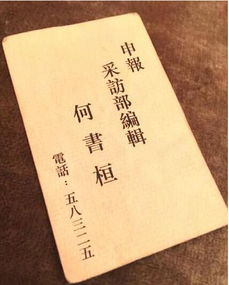 申報
采訪部編輯
何書桓
電話：五八三二二五